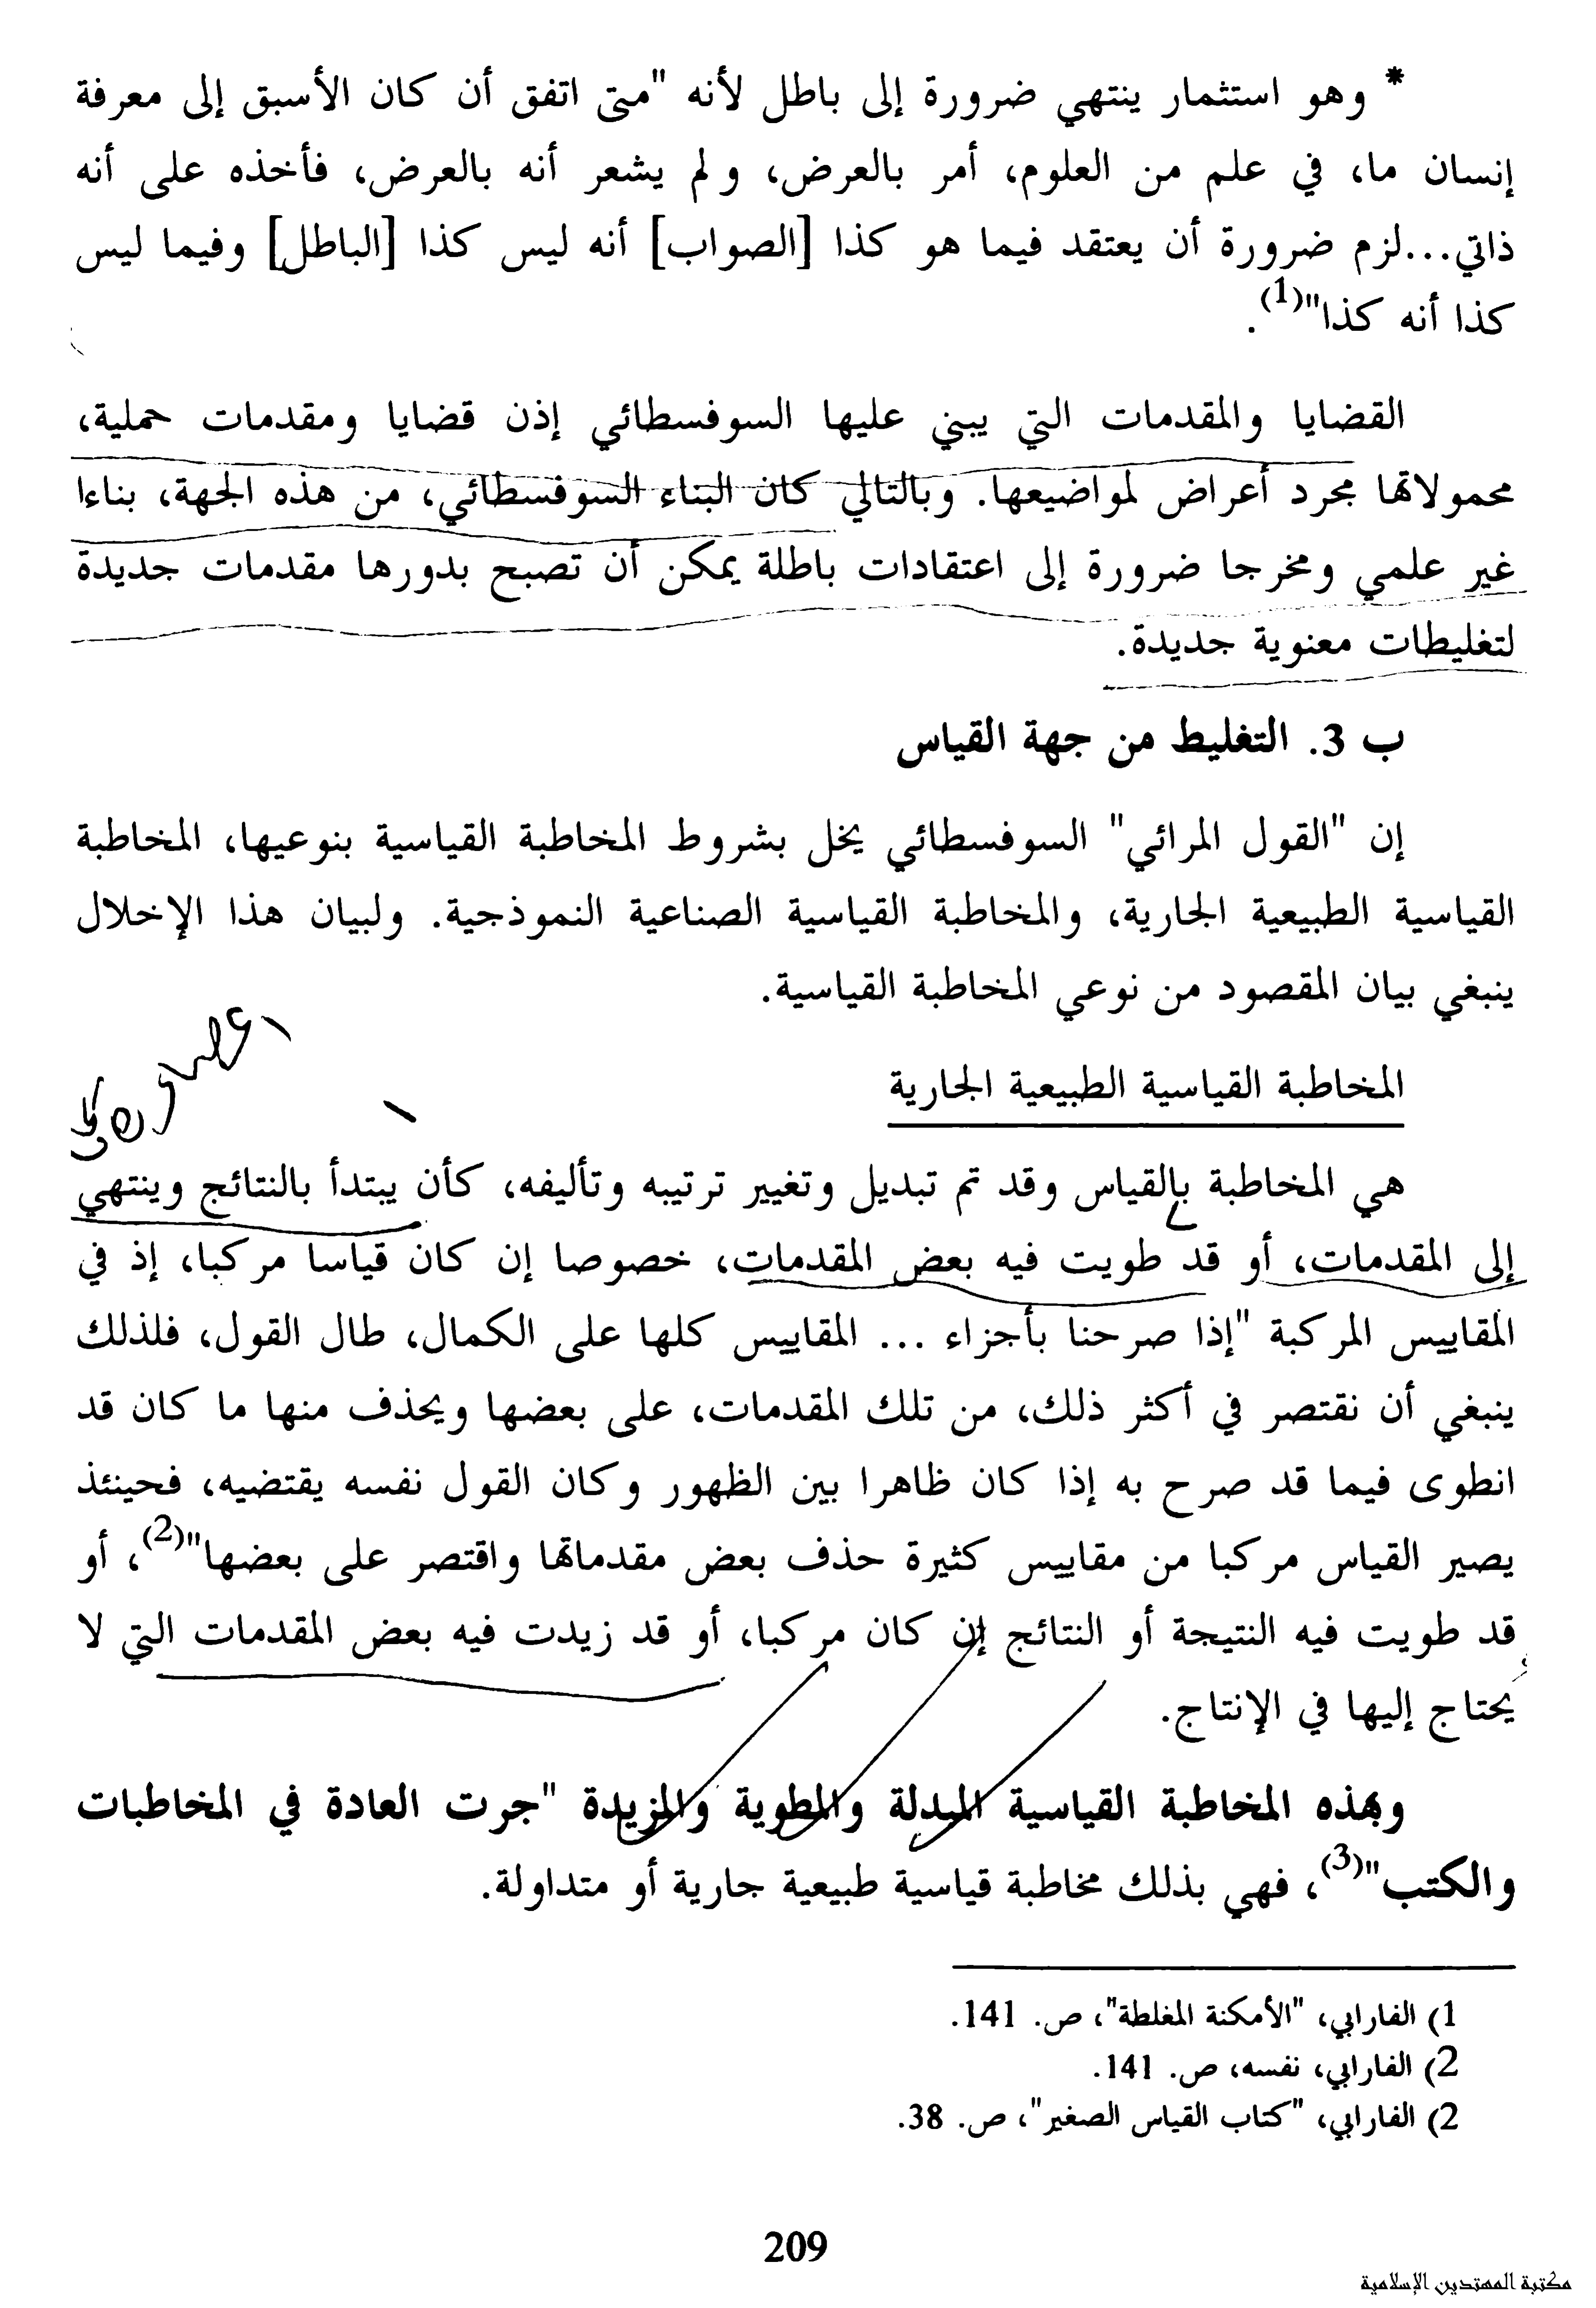 * وهو استثمار ينتهي ضرورة إلى باطل لأنه "متى اتفق أن كان الأسبق إلى معرفة
إنسان ما، في علم من العلوم، أمر بالعرض، ولم يشعر أنه بالعرض، فأخذه على أنه
ذاتي...لزم ضرورة أن يعتقد فيما هو كذا [الصواب] أنه ليس كذا [الباطل] وفيما ليس
كذا أنه كذا"(1).
القضايا والمقدمات التي يبني عليها السوفسطائي إذن قضايا ومقدمات حملية،
محمولاتها مجرد أعراض لمواضيعها. وبالتالي كان البناء السوفسطائي، من هذه الجهة، بناءا
غير علمي ومخرجا ضرورة إلى اعتقادات باطلة يمكن أن تصبح بدورها مقدمات جديدة
لتغليطات معنوية جديدة.
ب 3. التغليط من جهة القياس
إن "القول المرائي" السوفسطائي يخل بشروط المخاطبة القياسية بنوعيها، المخاطبة
القياسية الطبيعية الجارية، والمخاطبة القياسية الصناعية النموذجية. ولبيان هذا الإخلال
ينبغي بيان المقصود من نوعي المخاطبة القياسية.
المخاطبة القياسية الطبيعية الجارية
هي المخاطبة بالقياس وقد تم تبديل وتغيير ترتيبه وتأليفه، كأن يبتدأ بالنتائج وينتهي
إلى المقدمات، أو قد طويت فيه بعض المقدمات، خصوصا إن كان قياسا مركبا، إذ في
المقاييس المركبة "إذا صرحنا بأجزاء ... المقاييس كلها على الكمال، طال القول، فلذلك
ينبغي أن نقتصر في أكثر ذلك، من تلك المقدمات، على بعضها ويحذف منها ما كان قد
انطوى فيما قد صرح به إذا كان ظاهرا بين الظهور وكان القول نفسه يقتضيه، فحينئذ
يصير القياس مركبا من مقاييس كثيرة حذف بعض مقدماتها واقتصر على بعضها"(2)، أو
قد طويت فيه النتيجة أو النتائج إن كان مركبا، أو قد زيدت فيه بعض المقدمات التي لا
يحتاج إليها في الإنتاج.
وبهذه المخاطبة القياسية المبدلة والمطوية والمزيدة "جرت العادة في المخاطبات
والكتب"(3)، فهي بذلك مخاطبة قياسية طبيعية جارية أو متداولة.
1) الفارابي، "الأمكنة المغلطة"، ص. 141.
2) الفارابي، نفسه، ص. 141.
2) الفارابي، "كتاب القياس الصغير"، ص. 38.
209
مكتبة المهتدين الإسلامية